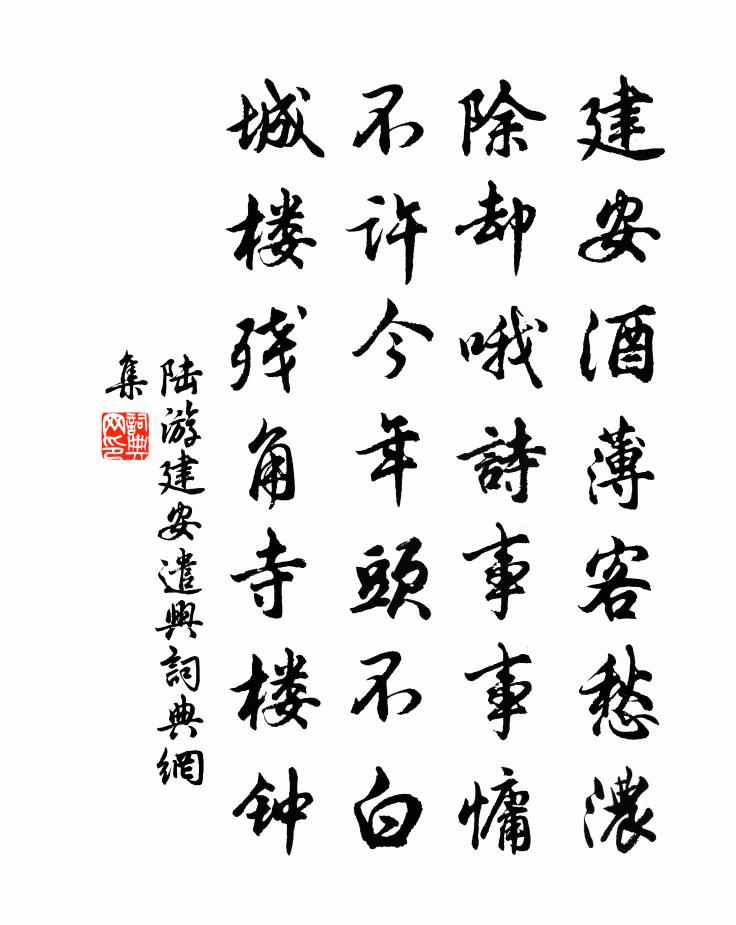 建安酒薄客愁濃
除却哦詩事事慵
不許今年頭不白
城楼残角寺楼钟
陆游建安遣興詞典網
集
詞典网印